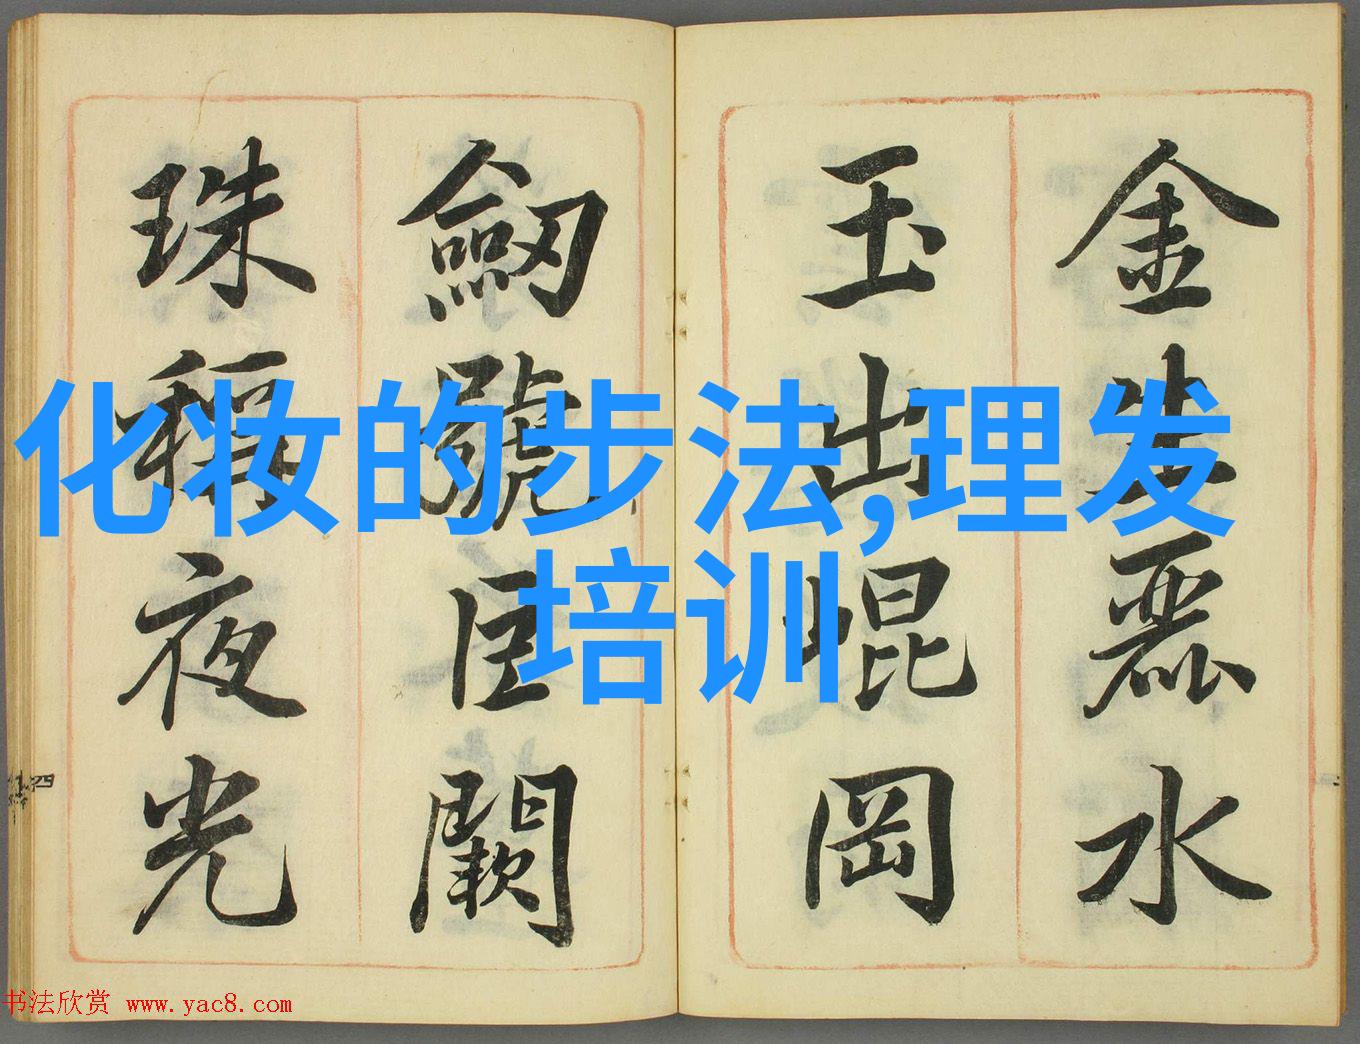 金生麗水
玉出崐岡
劒號巨闕
珠稱夜光
化妆的步法,理发
培训
四
书法欣赏 www.yac8.com